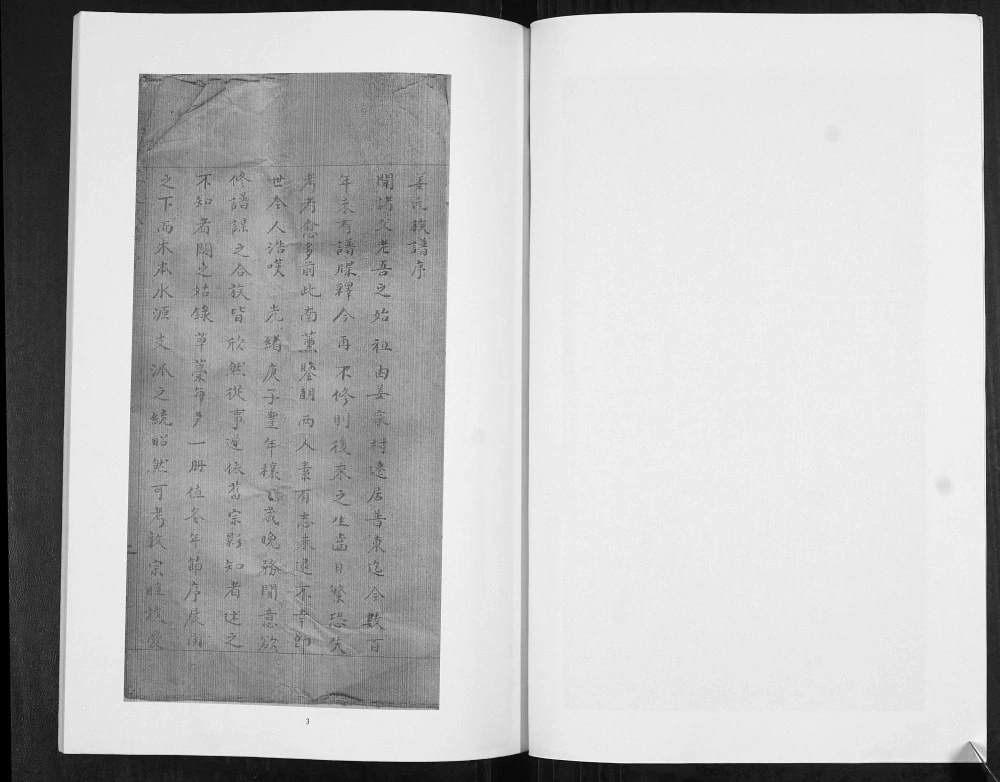 姜氏族譜序
聞諸父老吾之始祖由姜家村遷居善東迄今數百
年未有譜牒釋今再不修則後來之生齒日繁恐失
考者愈多前此南薰鑒朝兩人素有志未逮不幸即
世令人浩嘆 光緒庚子豐年穰穰歲晚務閒意欲
修譜謀之合族皆欣然從事遂依舊宗影知者述之
不知者闕之姑錄草藁每戶一冊值冬年節序展閱
之下而木本水源支派之繞昭然可考敦宗睦族
3